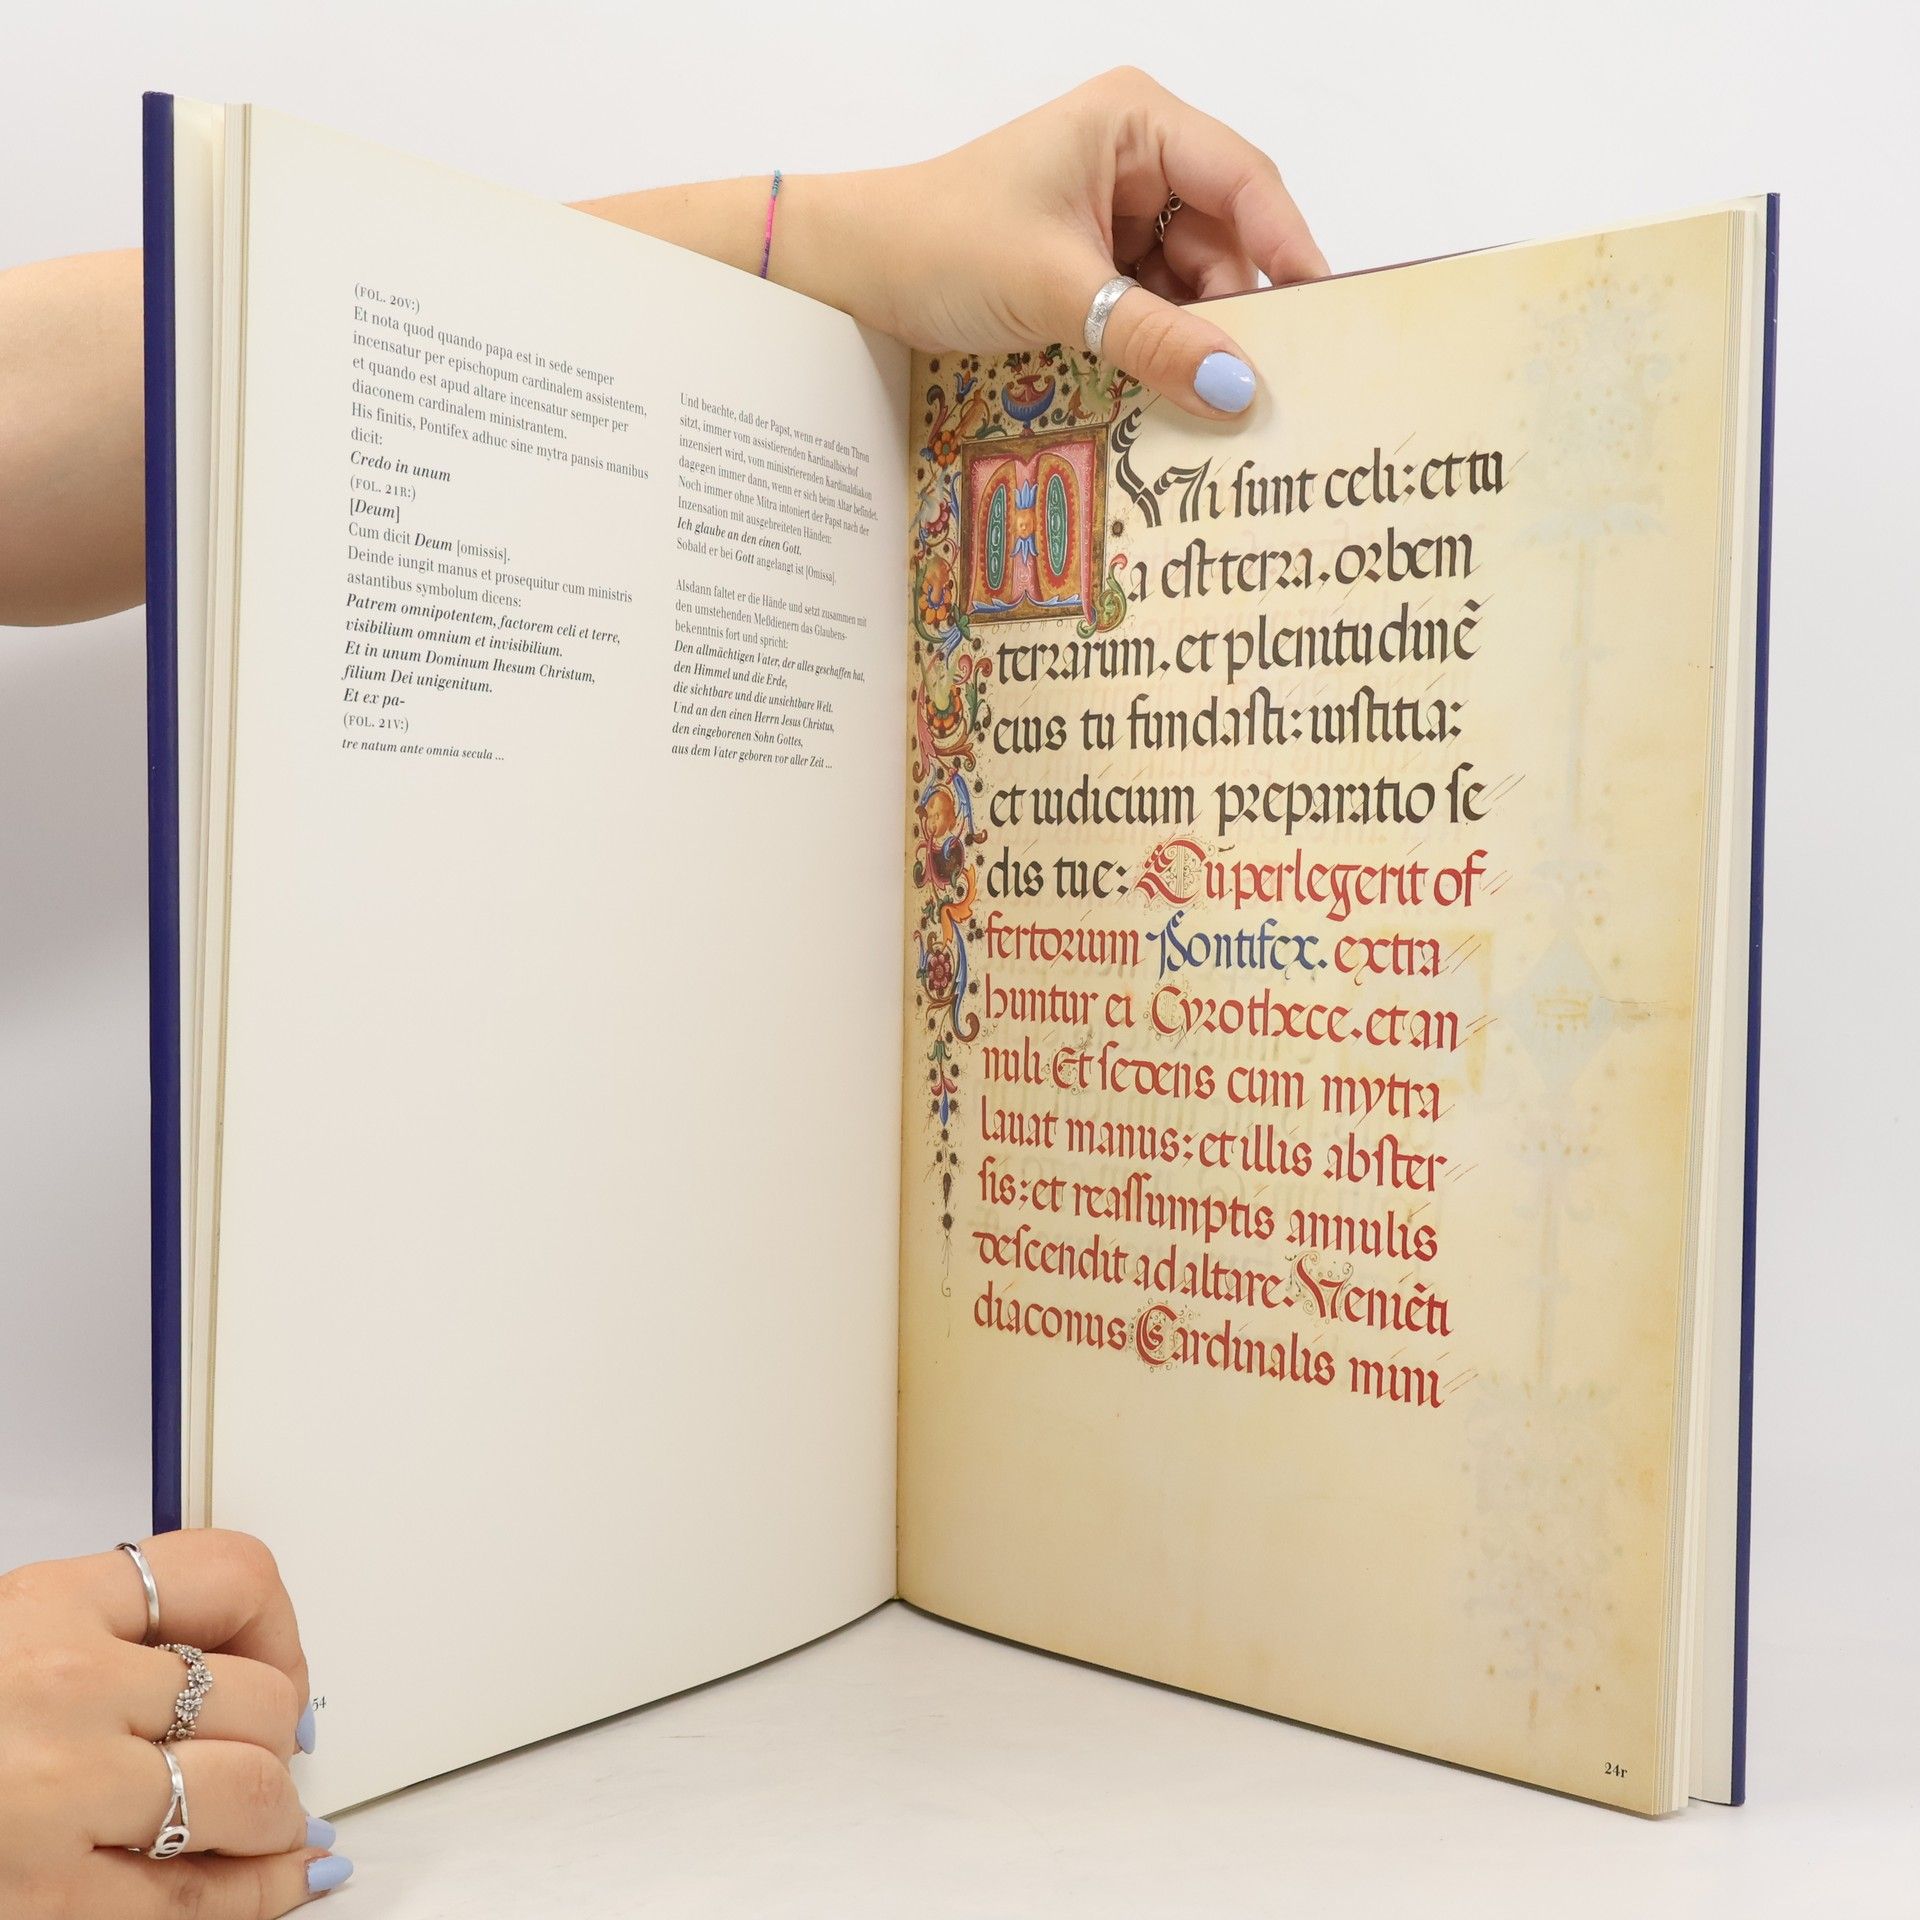 (FOL. 20V:)
Et nota quod quando papa est in sede semper
incensatur per epischopum cardinalem assistentem,
et quando est apud altare incensatur semper per
diaconem cardinalem ministrantem.
His finitis, Pontifex adhuc sine mytra pansis manibus
dicit:
Credo in unum
(FOL. 21R:)
[Deum]
Cum dicit Deum [omissis].
Deinde iungit manus et prosequitur cum ministris
astantibus symbolum dicens:
Patrem omnipotentem, factorem celi et terre,
visibilium omnium et invisibilium.
Et in unum Dominum Ihesum Christum,
filium Dei unigenitum.
Et ex pa-
(FOL. 21V:)
tre natum ante omnia secula ...
Und beachte, daß der Papst, wenn er auf dem Thron
sitzt, immer vom assistierenden Kardinalbischof
inzensiert wird, vom ministrierenden Kardinaldiakon
dagegen immer dann, wenn er sich beim Altar befindet.
Noch immer ohne Mitra intoniert der Papst nach der
Inzensation mit ausgebreiteten Händen:
Ich glaube an den einen Gott.
Sobald er bei Gott angelangt ist [Omissa].
Alsdann faltet er die Hände und setzt zusammen mit
den umstehenden Meßdienern das Glaubens-
bekenntnis fort und spricht:
Den allmächtigen Vater, der alles geschaffen hat,
den Himmel und die Erde,
die sichtbare und die unsichtbare Welt.
Und an den einen Herrn Jesus Christus,
den eingeborenen Sohn Gottes,
aus dem Vater geboren vor aller Zeit ...
54
Tui sunt celi: et tu
a est terra. orbem
terrarum. et plenitudinẽ
eius tu fundasti: iustitia:
et iudicium preparatio se
dis tue: Cũ perlegerit of
fertorium Pontifex. extra
huntur ei Cyrothece. et an
nuli Et sedens cum mytra
lauat manus: et illis abster
sis: et reassumptis annulis
descendit ad altare. Veniẽti
diaconus Cardinalis mini
24r